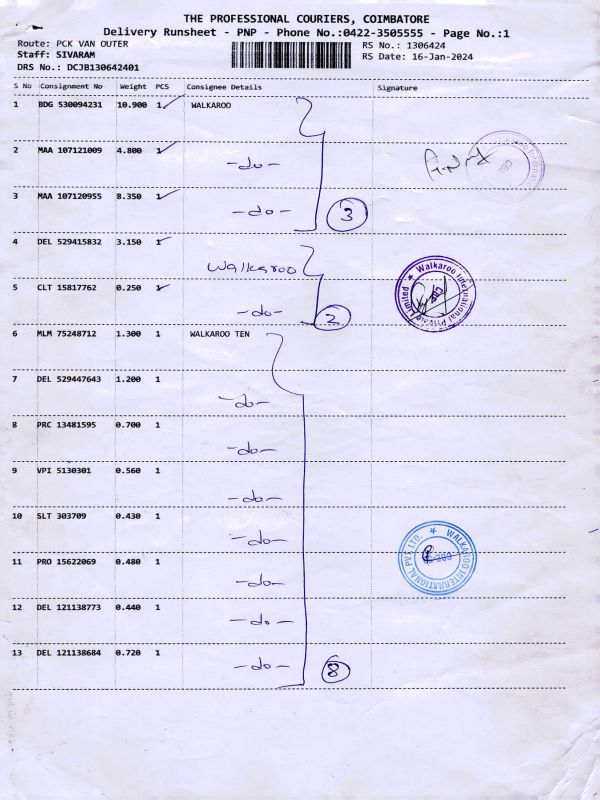 THE PROFESSIONAL COURIERS, COIMBATORE
Delivery Runsheet - PNP - Phone No.:0422-3505555 - Page No.:1
Route: PCK VAN OUTER RS No.: 1306424
Staff: SIVARAM RS Date: 16-Jan-2024
DRS No.: DCJB130642401
S No Consignment No Weight PCS Consignee Details Signature
1 BDG 530094231 10.900 1 WALKAROO
2 MAA 107121009 4.800 1 -do-
3 MAA 107120955 8.350 1 -do- 3
4 DEL 529415832 3.150 1 Walkaroo
5 CLT 15817762 0.250 1 -do- 2
Walkaroo International Private Limited
6 MLM 75248712 1.300 1 WALKAROO TEN
7 DEL 529447643 1.200 1 -do-
8 PRC 13481595 0.700 1 -do-
9 VPI 5130301 0.560 1 -do-
10 SLT 303709 0.430 1 -do-
11 PRO 15622069 0.480 1 -do-
WALKAROO INTERNATIONAL PVT. LTD.
12 DEL 121138773 0.440 1 -do-
13 DEL 121138684 0.720 1 -do- 8